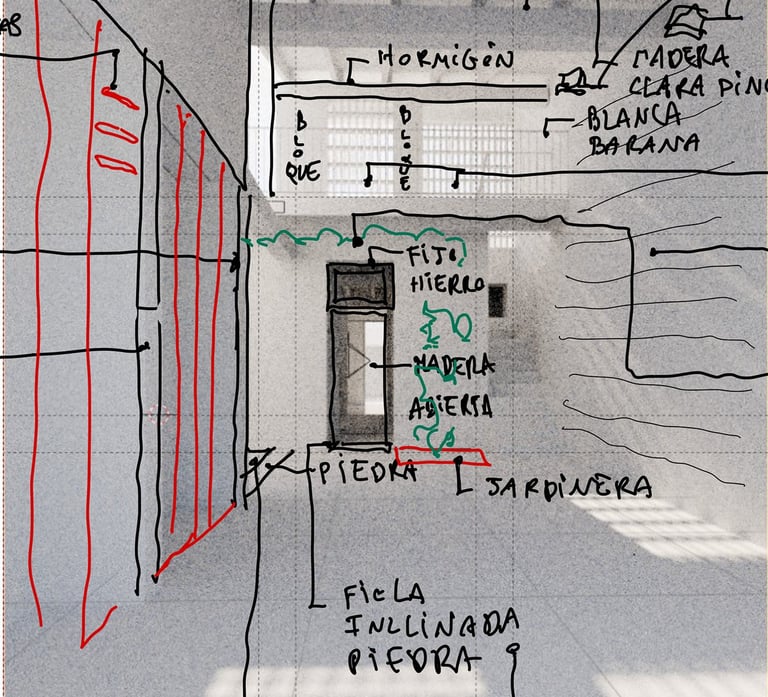 AS
HORMIGÓN
MADERA
CLARA PINO
BLANCA
BARANA
BLOQUE
BLOQUE
FIJO
HIERRO
MADERA
ABIERTA
PIEDRA
JARDINERA
FICLA
INCLINADA
PIEDRA